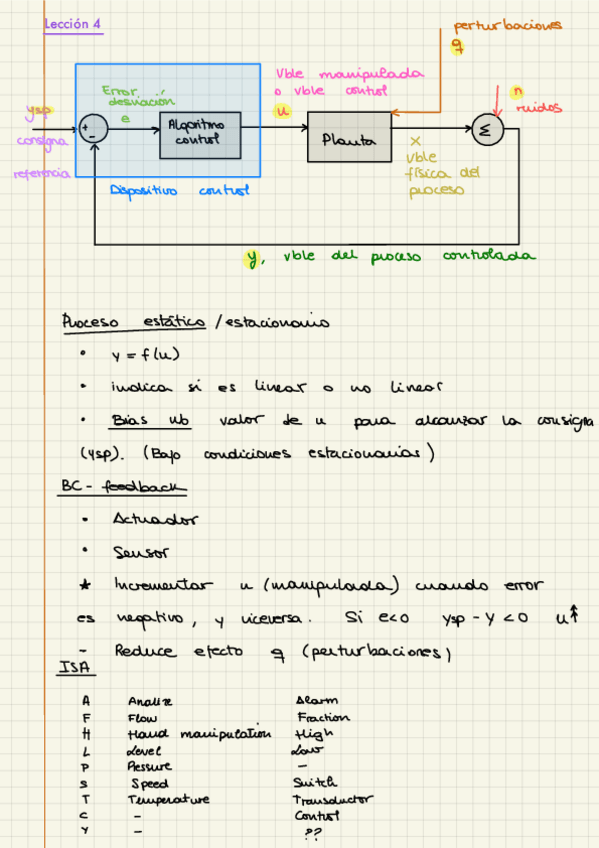 Lección 4
perturbaciones
q
Vble manipulada
o vble control
u
n
ruidos
Error,
desviación
e
ysp
consigna
referencia
+
-
Algoritmo
control
Planta
Σ
x
vble
física del
proceso
Dispositivo control
y, vble del proceso controlada
Proceso estático / estacionario
• y = f(u)
• indica si es linear o no linear
• Bias ub valor de u para alcanzar la consigna
(ysp). (Bajo condiciones estacionarias)
BC - feedback
• Actuador
• Sensor
★ Incrementar u (manipulada) cuando error
es negativo, y viceversa. Si e<0 ysp - y < 0 u↑
- Reduce efecto q (perturbaciones)
ISA
A Analize Alarm
F Flow Fraction
H Hand manipulation High
L Level Low
P Pressure -
S Speed Switch
T Temperature Transductor
C - Control
Y - ??